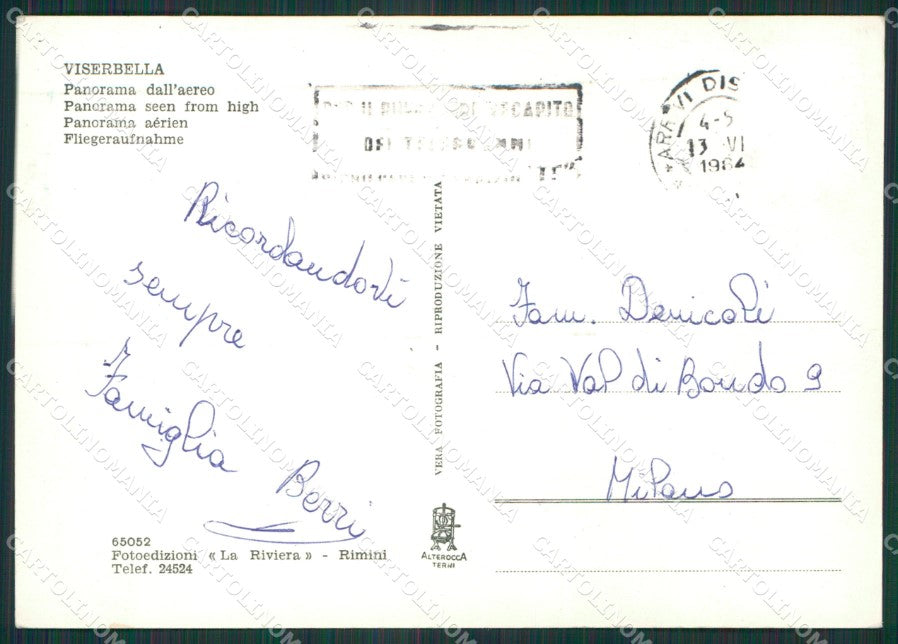 VISERBELLA
Panorama dall'aereo
Panorama seen from high
Panorama aérien
Fliegeraufnahme
RECAPITO
DEI TELEGRAMMI
VI DIS
4-5
13 VI
1964
Ricordandovi
sempre
Famiglia
Berri
VERA FOTOGRAFIA - RIPRODUZIONE VIETATA
Fam. Denicoli
Via Val di Bondo 9
Milano
65052
Fotoedizioni « La Riviera » - Rimini
Telef. 24524
ALTEROCCA
TERNI
CARTOLINOMANIA